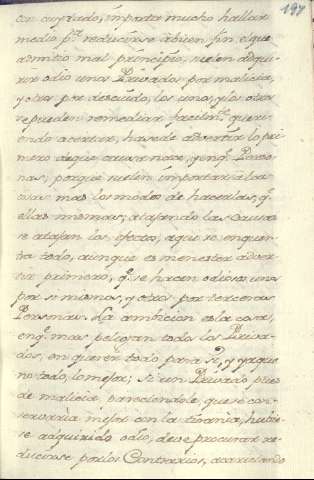 197
con cuydado, importa mucho hallar
medio pª. reducirse a buen fin el que
admitio mal principio, suelen adqui-
rir odio unos Privados por malicia,
y otros por descuido, los unos, y los otros
se pueden remediar facilmte. queri-
endo acertar, hasede advertir lo pri-
mero de que causa nace, y en qe. Perso-
nas; porque suelen importar a las
cosas mas los modos de hacerlas, qe.
ellas mismas; atajando las causas
se atajan los efectos, aqui se enquen-
tra todo, aunque es menester adver-
tir primero, qe. se hacen odiosos unos
por si mismos, y otros por terceras
Personas. La ambicion es la cosa,
en qe. mas peligran todos los Priva-
dos, en querer todo para si, y ya que
no todo, lo mejor; Si un Privado pues
de malicia, pareciendole que se con-
servaria mejor con la tirania, hubie-
se adquirido odio, deve procurar re-
ducirse por los Contrarios, acariciando